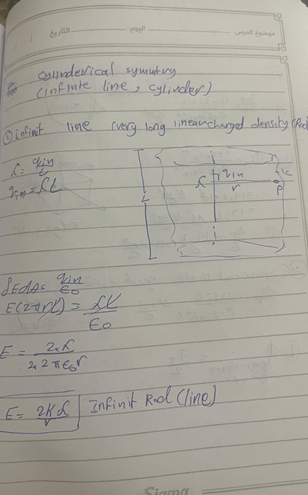 موضوع الدرس اليوم التاريخ
Cylinderical symmetry
(infinite line, cylinder)
① infinit line (very long linear charged density (Rod
λ = qin/L
qin = λL
L λ qin r P
∮EdA = qin/ε0
E(2πrL) = λL/ε0
E = 2λ/2×2πε0r
E = 2Kλ/r Infinit Rod (line)
Sigma